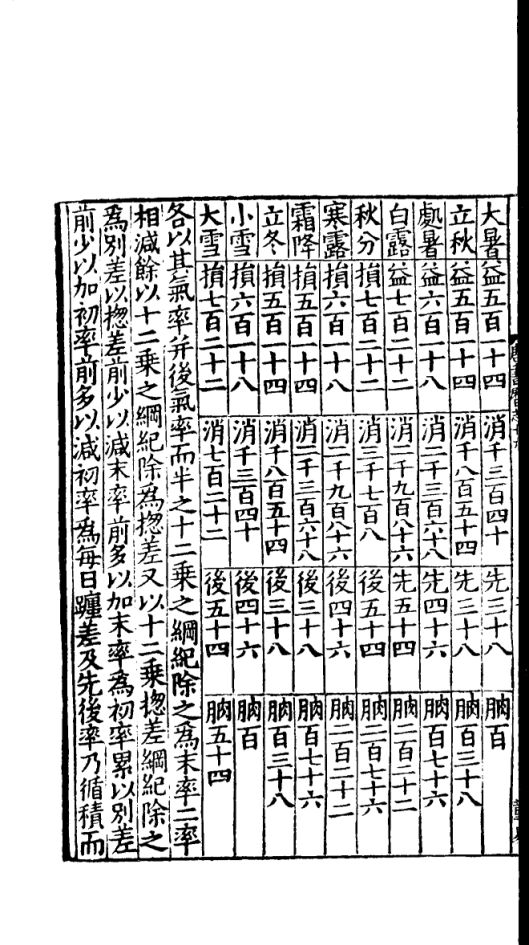 大暑 益五百一十四 消千三百四十 先三十八 朒百
立秋 益五百一十四 消千八百五十四 先三十八 朒百三十八
處暑 益六百一十八 消二千三百六十八 先四十六 朒百七十六
白露 益七百二十二 消二千九百八十六 先五十四 朒二百二十二
秋分 損七百二十二 消三千七百八 後五十四 朒二百七十六
寒露 損六百一十八 消二千九百八十六 後四十六 朒二百二十二
霜降 損五百一十四 消二千三百六十八 後三十八 朒百七十六
立冬 損五百一十四 消千八百五十四 後三十八 朒百三十八
小雪 損六百一十八 消千三百四十 後四十六 朒百
大雪 損七百二十二 消七百二十二 後五十四 朒五十四
各以其氣率并後氣率而半之十二乘之綱紀除之為末率二率
相減餘以十二乘之綱紀除為揔差又以十二乘揔差綱紀除之
為別差以揔差前少以減末率前多以加末率為初率累以別差
前少以加初率前多以減初率為每日躔差及先後率乃循積而